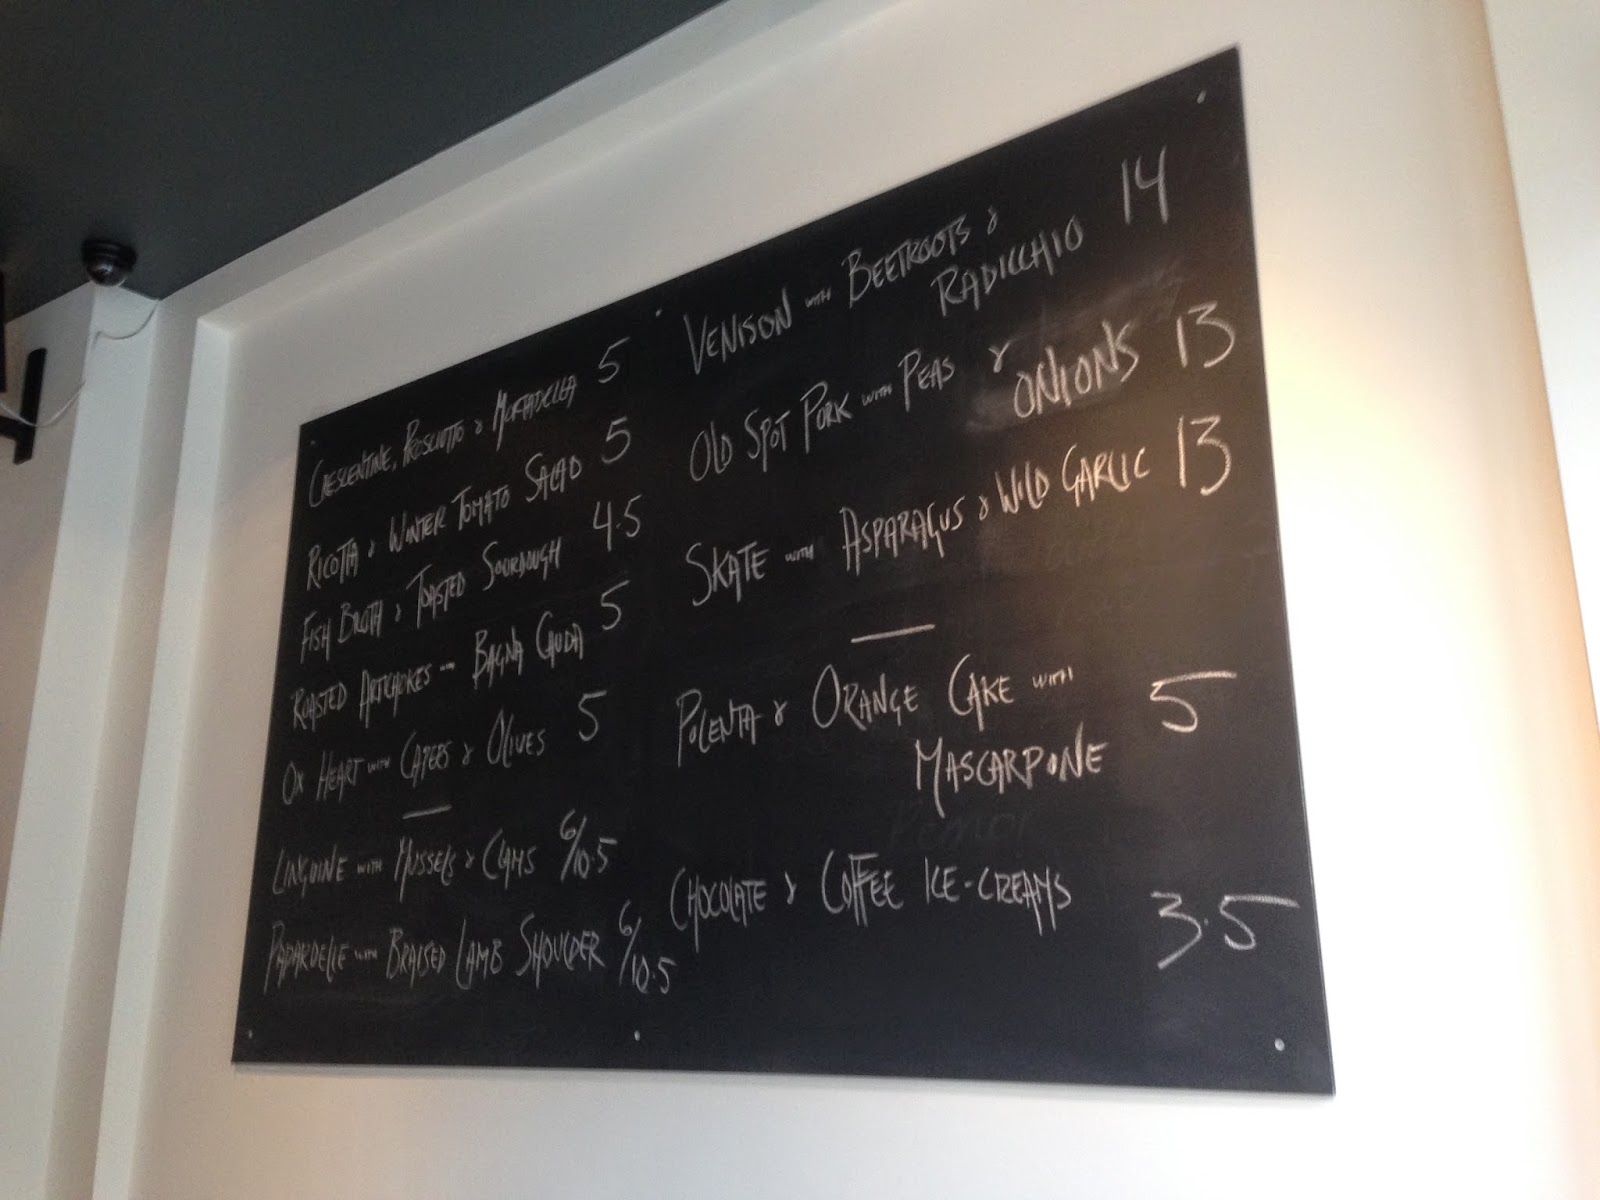 CRESCENTINE, PROSCIUTTO & MORTADELLA 5
RICOTTA & WINTER TOMATO SALAD 5
FISH BROTH & TOASTED SOURDOUGH 4.5
ROASTED ARTICHOKES WITH BAGNA CAUDA 5
OX HEART WITH CAPERS & OLIVES 5
LINGUINE WITH MUSSELS & CLAMS 6/10.5
PAPARDELLE WITH BRAISED LAMB SHOULDER 6/10.5
VENISON WITH BEETROOTS &
RADICCHIO 14
OLD SPOT PORK WITH PEAS &
ONIONS 13
SKATE WITH ASPARAGUS & WILD GARLIC 13
POLENTA & ORANGE CAKE WITH
MASCARPONE 5
CHOCOLATE & COFFEE ICE-CREAMS 3.5